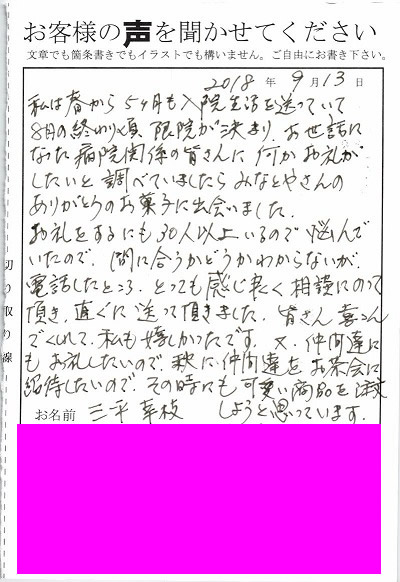 お客様の声を聞かせてください
文章でも箇条書きでもイラストでも構いません。ご自由にお書き下さい。
2018年9月13日
私は春から5ヶ月も入院生活を送っていて
8月の終わり頃 退院が決まり、お世話に
なった病院関係の皆さんに何かお礼が
したいと調べていましたらみなとやさんの
ありがとうのお菓子に出会いました。
お礼をするにも30人以上いるので悩んで
いたので、間に合うかどうかわからないが、
電話したところ、とっても感じ良く相談にのって
頂き、直ぐに送って頂きました。皆さん喜こん
でくれて、私も嬉しかったです。又、仲間達に
もお礼したいので、秋に仲間達をお茶会に
招待したいので、その時にも可愛い商品を注文
しようと思っています。
お名前 三平 幸枝
切り取り線